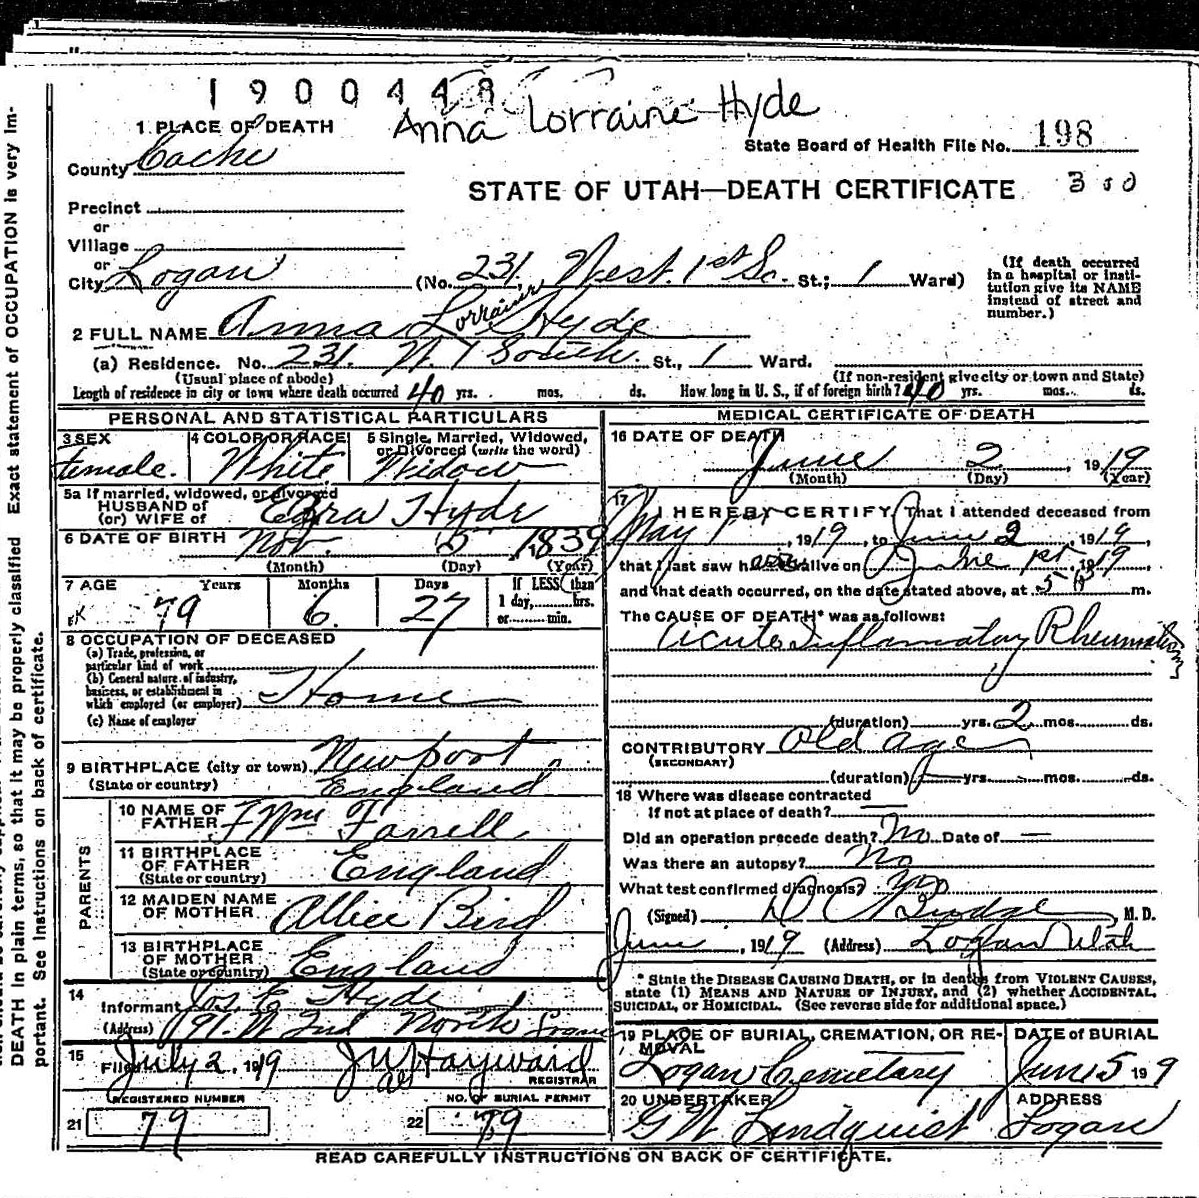 1900448
Anna Lorraine Hyde
1 PLACE OF DEATH
County Cache
State Board of Health File No. 198
STATE OF UTAH—DEATH CERTIFICATE 300
Precinct
or
Village
or
City Logan (No. 231 West 1st So. St.; 1 Ward)
(If death occurred in a hospital or institution give its NAME instead of street and number.)
2 FULL NAME Anna Lorraine Hyde
(a) Residence. No. 231 W. 1 South St., 1 Ward.
(Usual place of abode) (If non-resident give city or town and State)
Length of residence in city or town where death occurred 40 yrs. mos. ds. How long in U. S., if of foreign birth? 40 yrs. mos. ds.
PERSONAL AND STATISTICAL PARTICULARS
3 SEX 4 COLOR OR RACE 5 Single, Married, Widowed, or Divorced (write the word)
female. White Widow
5a If married, widowed, or divorced
HUSBAND of
(or) WIFE of Ezra Hyde
6 DATE OF BIRTH Nov. 5 1839
(Month) (Day) (Year)
7 AGE Years Months Days If LESS than
79 6 27 1 day, hrs.
or min.
8 OCCUPATION OF DECEASED
(a) Trade, profession, or
particular kind of work
(b) General nature of industry,
business, or establishment in
which employed (or employer) Home
(c) Name of employer
9 BIRTHPLACE (city or town) Newport
(State or country) England
PARENTS
10 NAME OF
FATHER Wm Farrell
11 BIRTHPLACE
OF FATHER England
(State or country)
12 MAIDEN NAME
OF MOTHER Allice Bird
13 BIRTHPLACE
OF MOTHER England
(State or country)
14
Informant Jos. E. Hyde
(Address) 191 W 2nd North Logan
15
Filed July 2, 1919 J W Hayward
REGISTRAR
REGISTERED NUMBER NO. OF BURIAL PERMIT
21 79 22 79
MEDICAL CERTIFICATE OF DEATH
16 DATE OF DEATH
June 2, 1919
(Month) (Day) (Year)
17
I HEREBY CERTIFY, That I attended deceased from
May 1st, 1919, to June 2, 1919,
that I last saw her alive on June 1st, 1919,
and that death occurred, on the date stated above, at 5 P m.
The CAUSE OF DEATH* was as follows:
Acute Inflamatory Rheumatism
(duration) yrs. 2 mos. ds.
CONTRIBUTORY Old age
(SECONDARY)
(duration) yrs. mos. ds.
18 Where was disease contracted
if not at place of death?
Did an operation precede death? No Date of —
Was there an autopsy? No
What test confirmed diagnosis?
(Signed) D C Budge, M. D.
June, 1919 (Address) Logan Utah
* State the DISEASE CAUSING DEATH, or in deaths from VIOLENT CAUSES,
state (1) MEANS AND NATURE OF INJURY, and (2) whether ACCIDENTAL,
SUICIDAL, or HOMICIDAL. (See reverse side for additional space.)
19 PLACE OF BURIAL, CREMATION, OR RE- DATE OF BURIAL
MOVAL
Logan Cemetary June 5 199
20 UNDERTAKER ADDRESS
G W Lindquist Logan
READ CAREFULLY INSTRUCTIONS ON BACK OF CERTIFICATE.
DEATH in plain terms, so that it may be properly classified Exact statement of OCCUPATION is very im-
portant. See instructions on back of certificate.